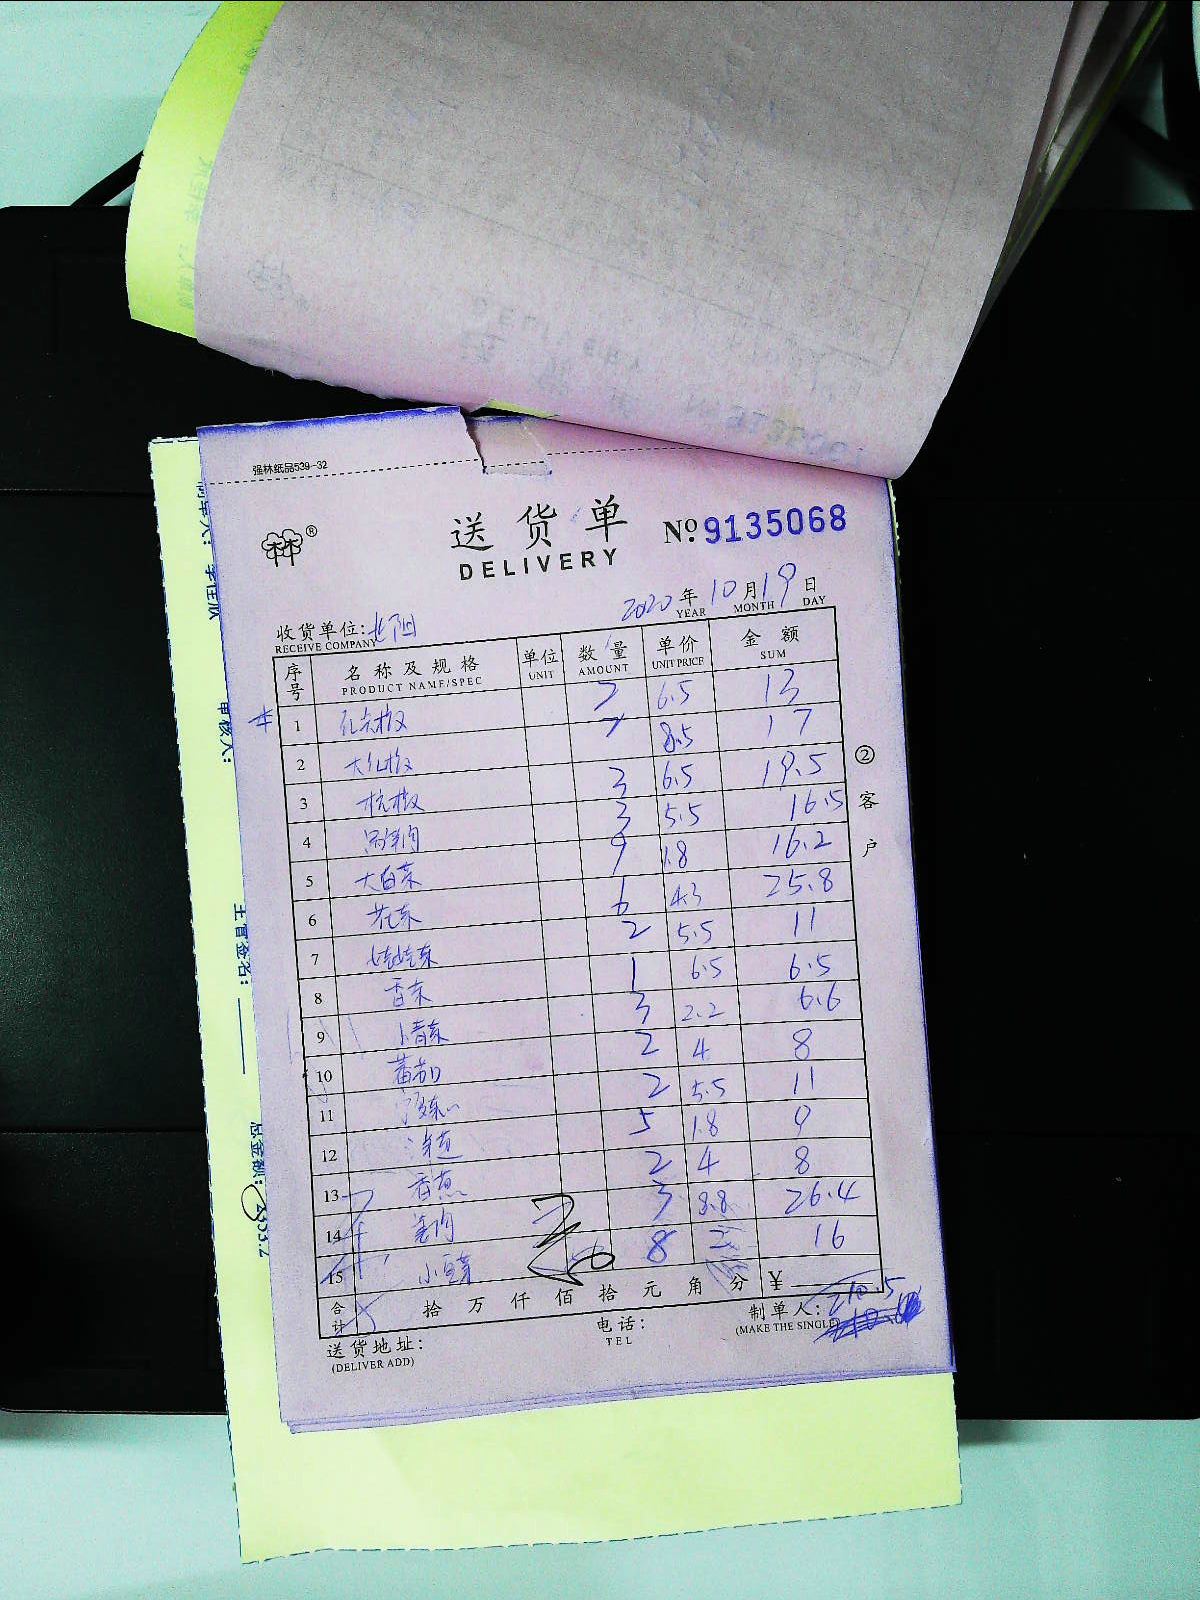 强林纸品539-32
林林®
送货单
DELIVERY
No.9135068
2020年10月19日
YEAR MONTH DAY
收货单位:
RECEIVE COMPANY
序号 名称及规格 单位 数量 单价 金额
PRODUCT NAME/SPEC UNIT AMOUNT UNIT PRICE SUM
1 2 6.5 13
2 大红椒 2 8.5 17
3 杭椒 3 6.5 19.5
4 3 5.5 16.5
5 大白菜 9 1.8 16.2
6 花菜 6 4.3 25.8
7 娃娃菜 2 5.5 11
8 香菜 1 6.5 6.5
9 小青菜 3 2.2 6.6
10 蕃茄 2 4 8
11 2 5.5 11
12 5 1.8 9
13 香葱 2 4 8
14 3 8.8 26.4
15 小豆芽 8 2 16
合计 拾万仟佰拾元角分 ¥ 210.5
送货地址:
(DELIVER ADD)
电话:
TEL
制单人:
(MAKE THE SINGLE)
②客户
审核人:
主管签名:
总金额: